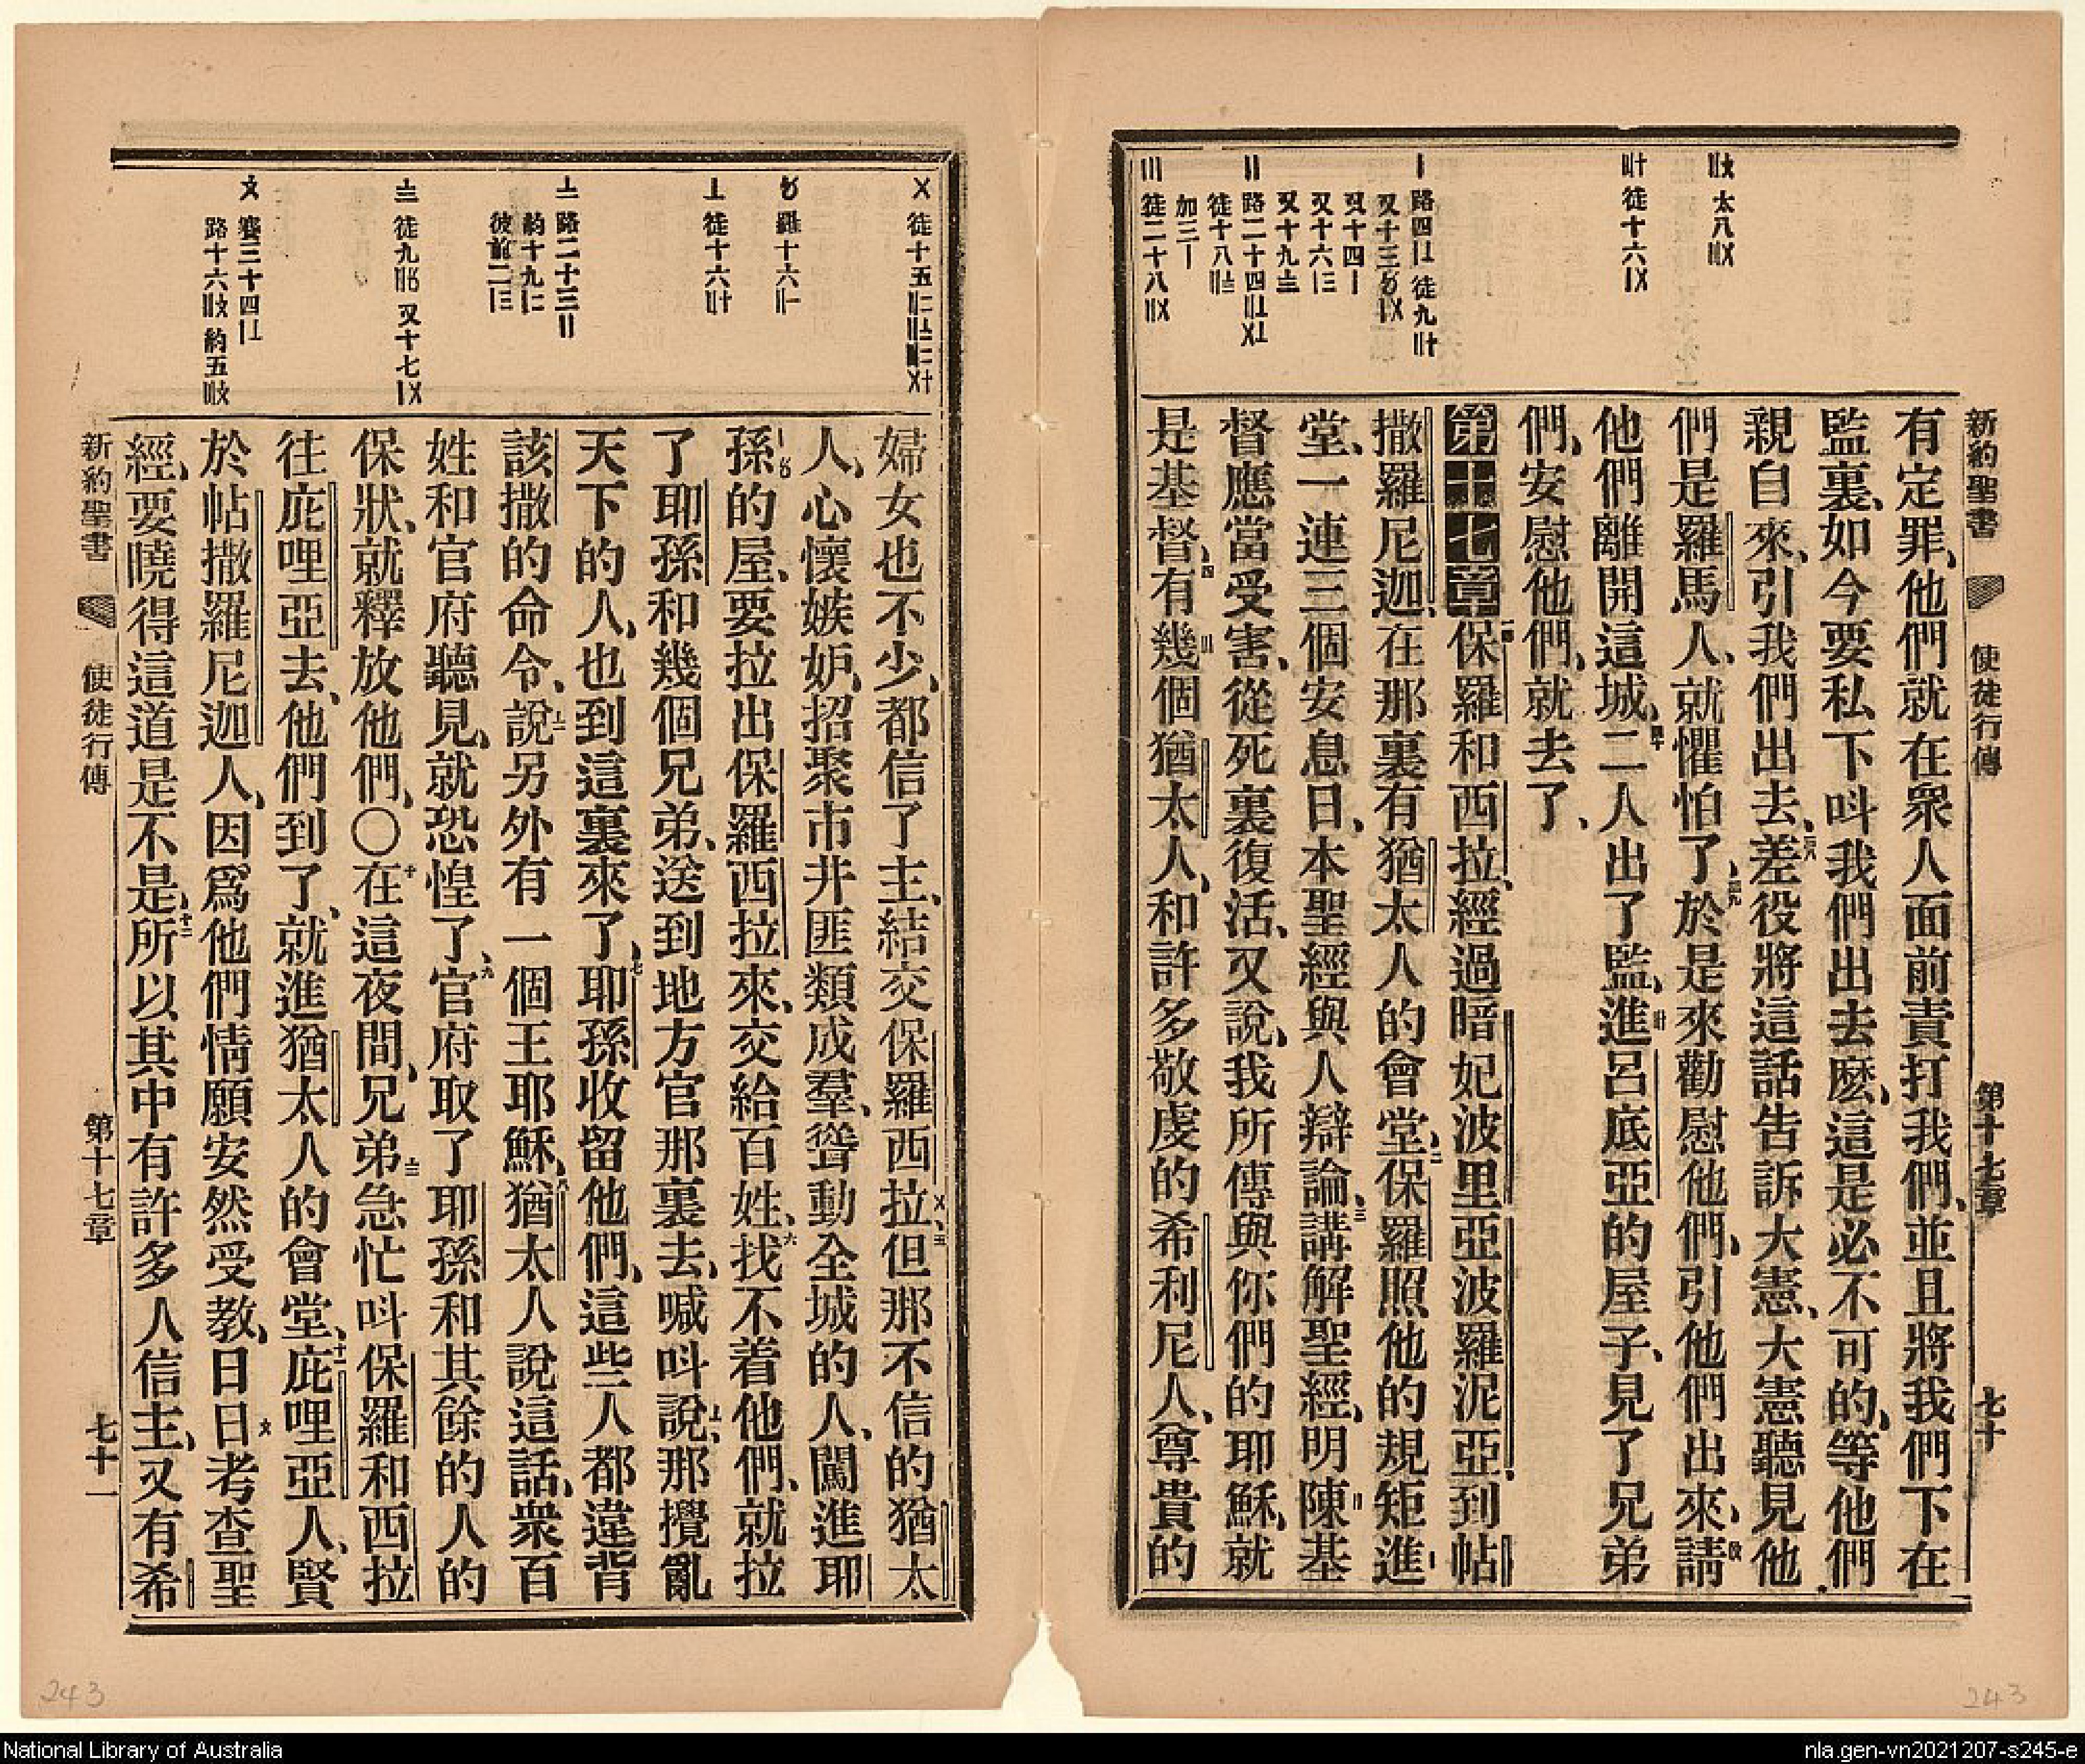 新約聖書 使徒行傳 第十七章 七十
〢〤 太八〤〢
〣〸 徒十六〡〤
〡 路四〡〦 徒九〢〸
又十四〡
又十六〡三
又十九〨
徒十八〢〨
加三〡
〣 徒二十八〢〤
有定罪、他們就在衆人面前責打我們、並且將我們下在
監裏、如今要私下呌我們出去麽、這是必不可的、等他們
親自來、引我們出去、三八差役將這話告訴大憲、大憲聽見他
們是羅馬人、就懼怕了、三九於是來勸慰他們、引他們出來、請
他們離開這城、四十二人出了監、進呂底亞的屋子、見了兄弟
們、安慰他們、就去了、
第十七章 一保羅和西拉、經過暗妃波里亞波羅泥亞、到帖
撒羅尼迦、在那裏有猶太人的會堂、二保羅照他的規矩進
堂、一連三個安息日、本聖經與人辯論、三講解聖經、明陳基
督應當受害、從死裏復活、又說、我所傳與你們的耶穌、就
是基督、四有幾個猶太人、和許多敬虔的希利尼人、尊貴的
〤 徒十五
〩 羅十六〢〡
〦 徒十六〢〸
路二十三〢
約十九〡二
彼前二〡三
〨 徒九〢〥 又十七〡〤
賽三十四〡〦
路十六〢〩 約五〣〩
婦女也不少、都信了主、結交保羅西拉、五但那不信的猶太
人、心懷嫉妒、招聚市井匪類成羣、聳動全城的人、闖進耶
孫的屋、要拉出保羅西拉來、交給百姓、六找不着他們、就拉
了耶孫和幾個兄弟、送到地方官那裏去、喊呌說、那攪亂
天下的人、也到這裏來了、七耶孫收留他們、這些人都違背
該撒的命令、說另外有一個王耶穌、八猶太人說這話、衆百
姓和官府聽見、就恐惶了、九官府取了耶孫和其餘的人的
保狀、就釋放他們、〇十在這夜間、兄弟急忙呌保羅和西拉
往庇哩亞去、他們到了、就進猶太人的會堂、十一庇哩亞人、賢
於帖撒羅尼迦人、因爲他們情願安然受教、日日考查聖
經、要曉得這道是不是、十二所以其中有許多人信主、又有希
新約聖書 使徒行傳 第十七章 七十一
243
243
National Library of Australia
nla.gen-vn2021207-s245-e